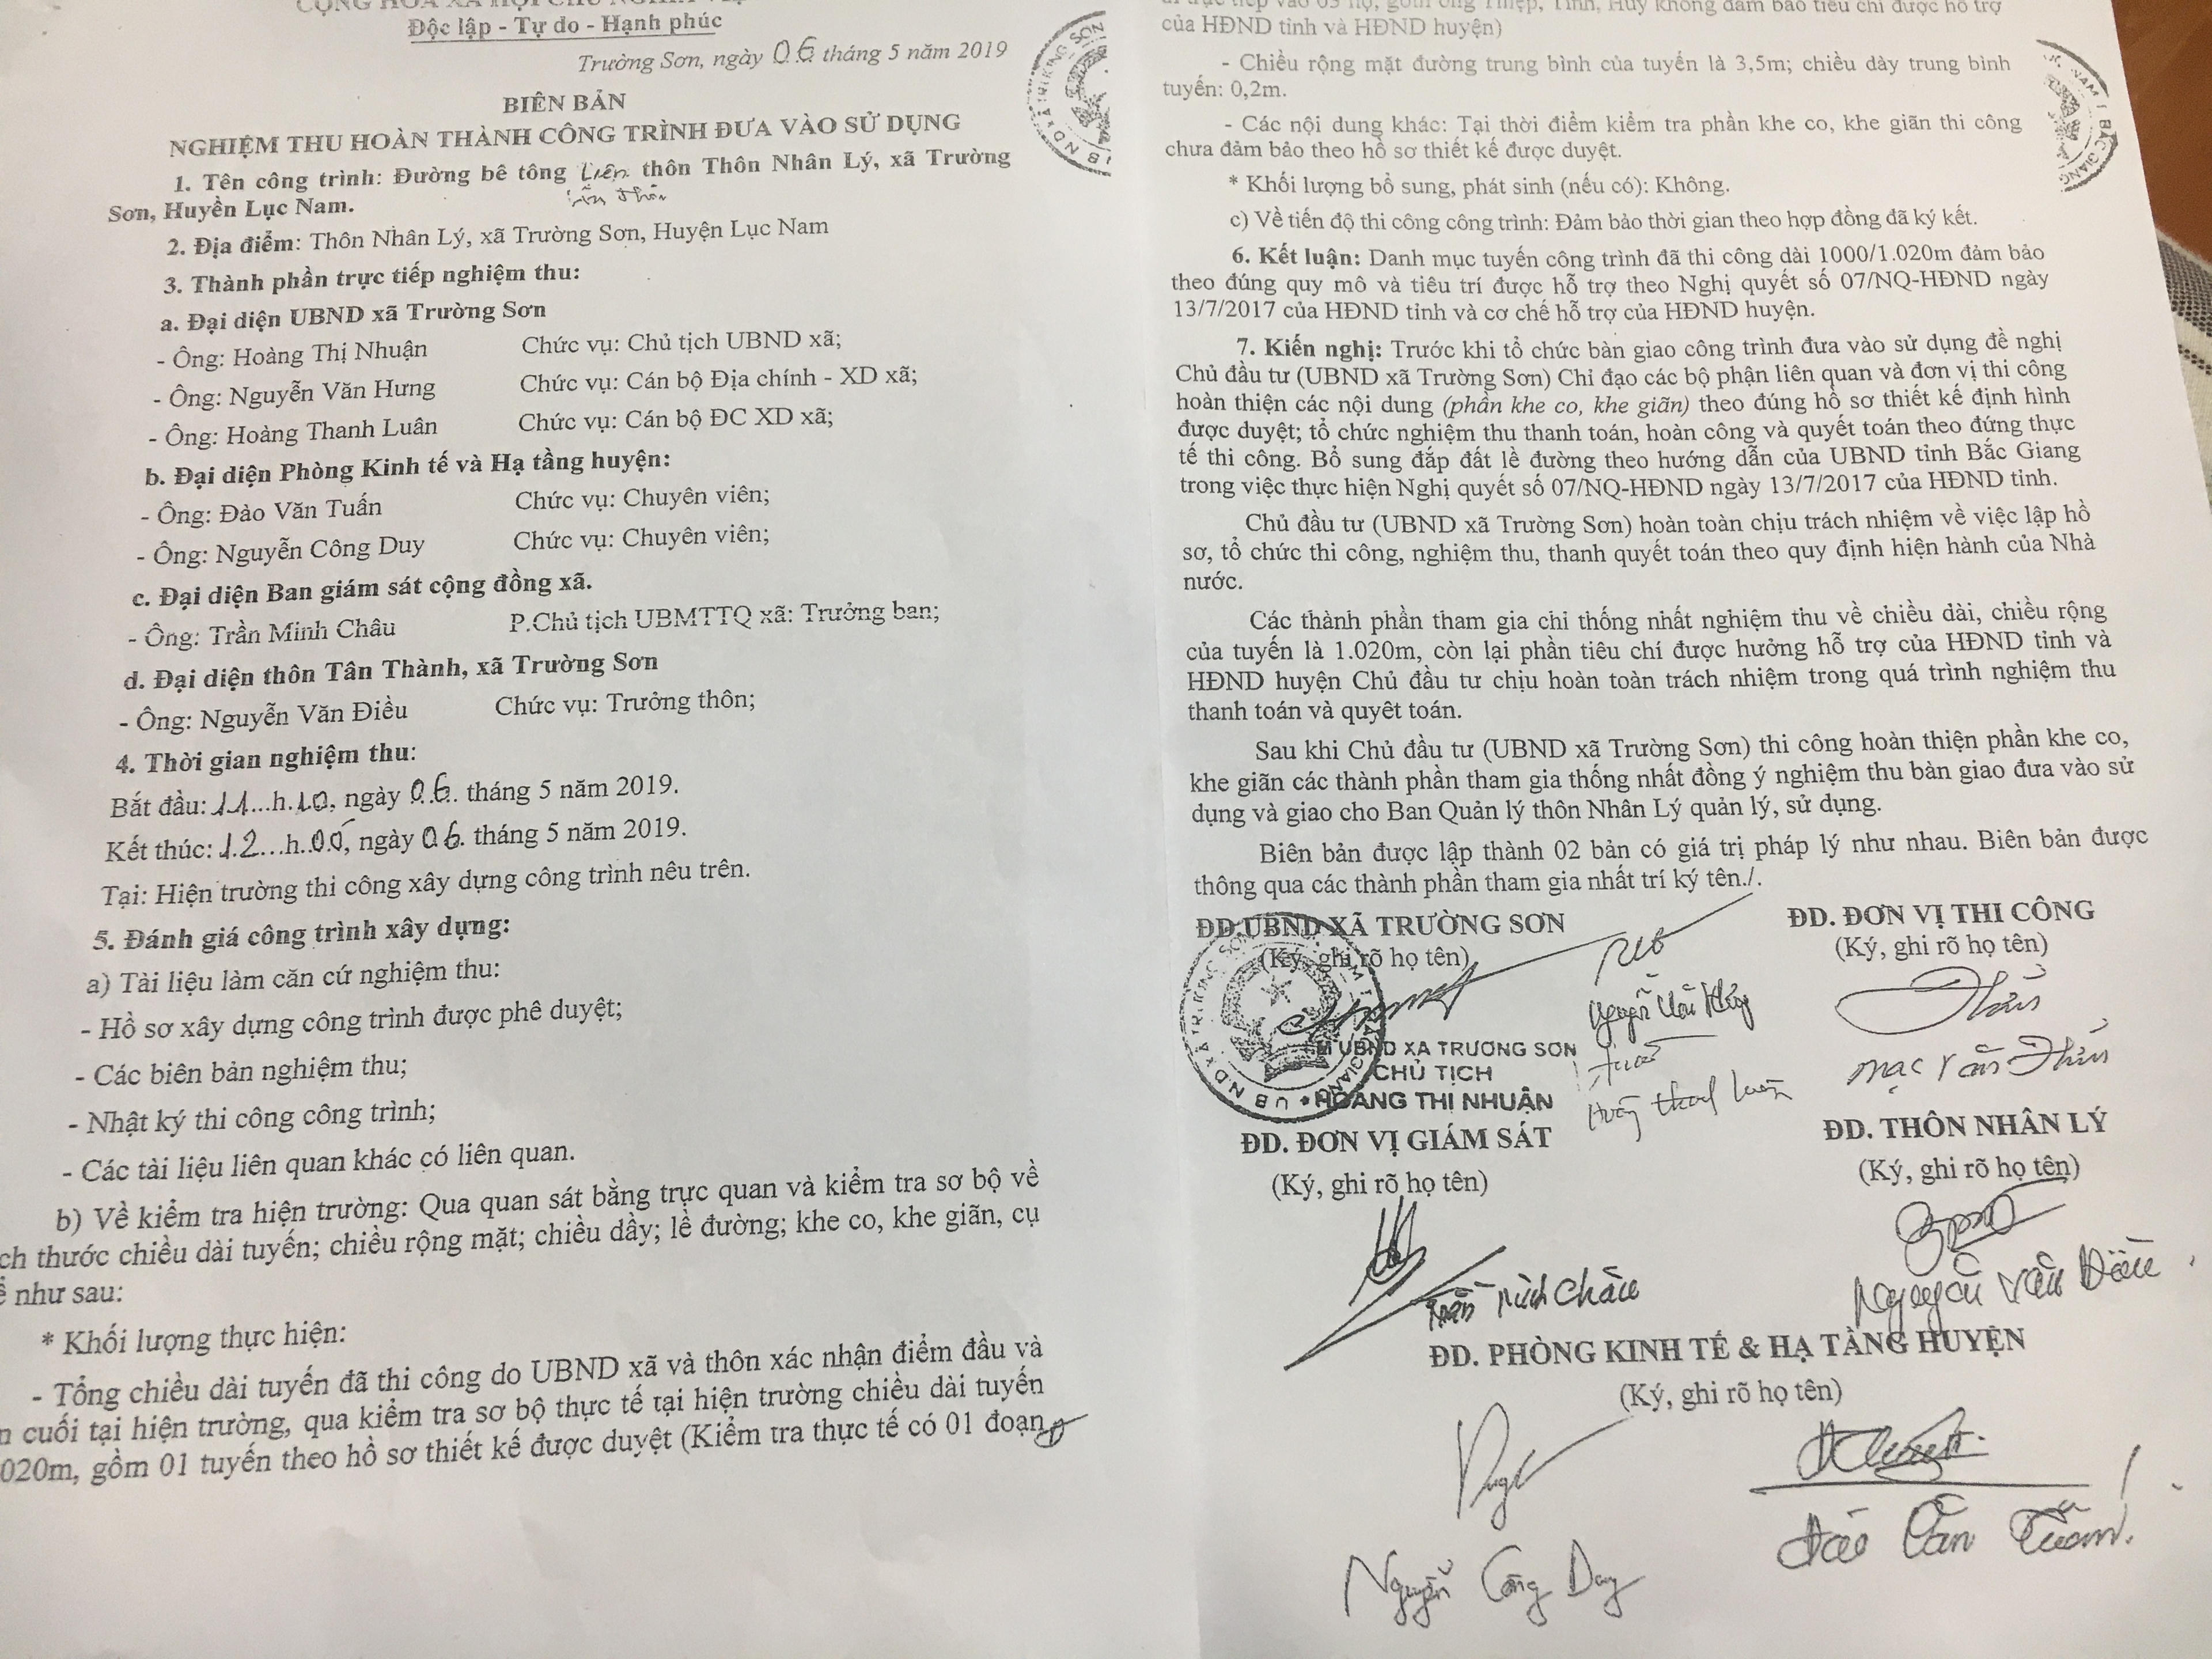 CỘNG HÒA XÃ HỘI CHỦ NGHĨA
Độc lập - Tự do - Hạnh phúc
Trường Sơn, ngày 06 tháng 5 năm 2019
BIÊN BẢN
NGHIỆM THU HOÀN THÀNH CÔNG TRÌNH ĐƯA VÀO SỬ DỤNG
1. Tên công trình: Đường bê tông Liên thôn Thôn Nhân Lý, xã Trường
Sơn, Huyền Lục Nam.
2. Địa điểm: Thôn Nhân Lý, xã Trường Sơn, Huyện Lục Nam
3. Thành phần trực tiếp nghiệm thu:
a. Đại diện UBND xã Trường Sơn
- Ông: Hoàng Thị Nhuận Chức vụ: Chủ tịch UBND xã;
- Ông: Nguyễn Văn Hưng Chức vụ: Cán bộ Địa chính - XD xã;
- Ông: Hoàng Thanh Luân Chức vụ: Cán bộ ĐC XD xã;
b. Đại diện Phòng Kinh tế và Hạ tầng huyện:
- Ông: Đào Văn Tuấn Chức vụ: Chuyên viên;
- Ông: Nguyễn Công Duy Chức vụ: Chuyên viên;
c. Đại diện Ban giám sát cộng đồng xã.
- Ông: Trần Minh Châu P.Chủ tịch UBMTTQ xã: Trưởng ban;
d. Đại diện thôn Tân Thành, xã Trường Sơn
- Ông: Nguyễn Văn Điều Chức vụ: Trưởng thôn;
4. Thời gian nghiệm thu:
Bắt đầu: 11...h.10, ngày 06. tháng 5 năm 2019.
Kết thúc: 12...h.00, ngày 06. tháng 5 năm 2019.
Tại: Hiện trường thi công xây dựng công trình nêu trên.
5. Đánh giá công trình xây dựng:
a) Tài liệu làm căn cứ nghiệm thu:
- Hồ sơ xây dựng công trình được phê duyệt;
- Các biên bản nghiệm thu;
- Nhật ký thi công công trình;
- Các tài liệu liên quan khác có liên quan.
b) Về kiểm tra hiện trường: Qua quan sát bằng trực quan và kiểm tra sơ bộ về
ch thước chiều dài tuyến; chiều rộng mặt; chiều dầy; lề đường; khe co, khe giãn, cụ
ể như sau:
* Khối lượng thực hiện:
- Tổng chiều dài tuyến đã thi công do UBND xã và thôn xác nhận điểm đầu và
cuối tại hiện trường, qua kiểm tra sơ bộ thực tế tại hiện trường chiều dài tuyến
020m, gồm 01 tuyến theo hồ sơ thiết kế được duyệt (Kiểm tra thực tế có 01 đoạn
đi trực tiếp vào 03 hộ, gồm ông Thiệp, Tình, Huy không đảm bảo tiêu chí được hỗ trợ
của HĐND tỉnh và HĐND huyện)
- Chiều rộng mặt đường trung bình của tuyến là 3,5m; chiều dày trung bình
tuyến: 0,2m.
- Các nội dung khác: Tại thời điểm kiểm tra phần khe co, khe giãn thi công
chưa đảm bảo theo hồ sơ thiết kế được duyệt.
* Khối lượng bổ sung, phát sinh (nếu có): Không.
c) Về tiến độ thi công công trình: Đảm bảo thời gian theo hợp đồng đã ký kết.
6. Kết luận: Danh mục tuyến công trình đã thi công dài 1000/1.020m đảm bảo
theo đúng quy mô và tiêu trí được hỗ trợ theo Nghị quyết số 07/NQ-HĐND ngày
13/7/2017 của HĐND tỉnh và cơ chế hỗ trợ của HĐND huyện.
7. Kiến nghị: Trước khi tổ chức bàn giao công trình đưa vào sử dụng đề nghị
Chủ đầu tư (UBND xã Trường Sơn) Chỉ đạo các bộ phận liên quan và đơn vị thi công
hoàn thiện các nội dung (phần khe co, khe giãn) theo đúng hồ sơ thiết kế định hình
được duyệt; tổ chức nghiệm thu thanh toán, hoàn công và quyết toán theo đứng thực
tế thi công. Bổ sung đắp đất lề đường theo hướng dẫn của UBND tỉnh Bắc Giang
trong việc thực hiện Nghị quyết số 07/NQ-HĐND ngày 13/7/2017 của HĐND tỉnh.
Chủ đầu tư (UBND xã Trường Sơn) hoàn toàn chịu trách nhiệm về việc lập hồ
sơ, tổ chức thi công, nghiệm thu, thanh quyết toán theo quy định hiện hành của Nhà
nước.
Các thành phần tham gia chỉ thống nhất nghiệm thu về chiều dài, chiều rộng
của tuyến là 1.020m, còn lại phần tiêu chí được hưởng hỗ trợ của HĐND tỉnh và
HĐND huyện Chủ đầu tư chịu hoàn toàn trách nhiệm trong quá trình nghiệm thu
thanh toán và quyêt toán.
Sau khi Chủ đầu tư (UBND xã Trường Sơn) thi công hoàn thiện phần khe co,
khe giãn các thành phần tham gia thống nhất đồng ý nghiệm thu bàn giao đưa vào sử
dụng và giao cho Ban Quản lý thôn Nhân Lý quản lý, sử dụng.
Biên bản được lập thành 02 bản có giá trị pháp lý như nhau. Biên bản được
thông qua các thành phần tham gia nhất trí ký tên./.
ĐD.UBND XÃ TRƯỜNG SƠN ĐD. ĐƠN VỊ THI CÔNG
(Ký, ghi rõ họ tên) (Ký, ghi rõ họ tên)
UBND XA TRƯƠNG SƠN
CHỦ TỊCH
HOÀNG THỊ NHUẬN
ĐD. ĐƠN VỊ GIÁM SÁT ĐD. THÔN NHÂN LÝ
(Ký, ghi rõ họ tên) (Ký, ghi rõ họ tên)
Trần Minh Châu Nguyễn Văn Điều
ĐD. PHÒNG KINH TẾ & HẠ TẦNG HUYỆN
(Ký, ghi rõ họ tên)
Nguyễn Công Duy Đào Văn Tuấn